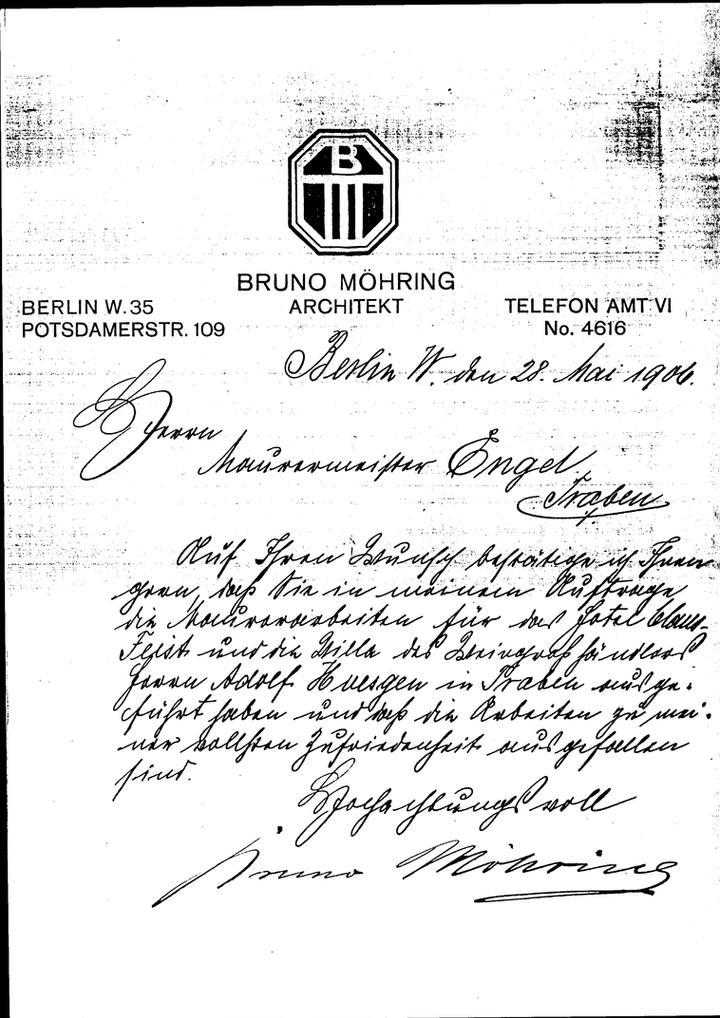 B
BRUNO MÖHRING
BERLIN W. 35 ARCHITEKT TELEFON AMT VI
POTSDAMERSTR. 109 No. 4616
Berlin W. den 28. Mai 1906.
Herrn
Maurermeister Engel,
Traben
Auf Ihren Wunsch bestätige ich Ihnen
gern, daß Sie in meinem Auftrage
die Maurerarbeiten für das Hotel Claus-
Feist und die Villa des Weingroßhändlers
Herrn Adolf Huesgen in Traben ausge-
führt haben und daß die Arbeiten zu mei-
ner vollsten Zufriedenheit ausgefallen
sind.
Hochachtungsvoll
Bruno Möhring